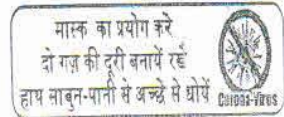 मास्क का प्रयोग करें
दो गज़ की दूरी बनायें रखें
हाथ साबुन-पानी से अच्छे से धोयें
Corona-Virus